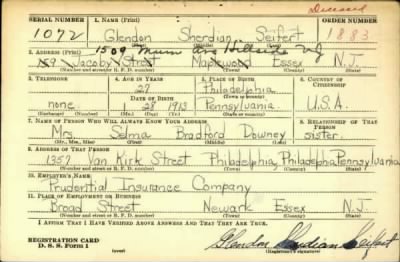 Deceased
SERIAL NUMBER 1. NAME (Print) ORDER NUMBER
1072 Glendon Sherdian Seifert 1883
1509 Ave Hillside NJ
2. ADDRESS (Print)
Jacoby Street Maplewood Essex N.J.
(Number and street or R. F. D. number) (Town) (County) (State)
3. TELEPHONE 4. AGE IN YEARS 5. PLACE OF BIRTH 6. COUNTRY OF CITIZENSHIP
27 Philadelphia
DATE OF BIRTH
none 1 27 1913 Pennsylvania U.S.A.
(Exchange) (Number) (Mo.) (Day) (Yr.) (State or country)
7. NAME OF PERSON WHO WILL ALWAYS KNOW YOUR ADDRESS 8. RELATIONSHIP OF THAT PERSON
Mrs. Selma Bradford Downey sister.
(Mr., Mrs., Miss) (First) (Middle) (Last)
9. ADDRESS OF THAT PERSON
1357 Van Kirk Street Philadelphia, Philadelphia Pennsylvania
(Number and street or R. F. D. number) (Town) (County) (State)
10. EMPLOYER'S NAME
Prudential Insurance Company
11. PLACE OF EMPLOYMENT OR BUSINESS
Broad Street Newark Essex N.J.
(Number and street or R. F. D. number) (Town) (County) (State)
I AFFIRM THAT I HAVE VERIFIED ABOVE ANSWERS AND THAT THEY ARE TRUE.
REGISTRATION CARD
D. S. S. Form 1 (over) Glendon Sherdian Seifert
(Registrant's signature)